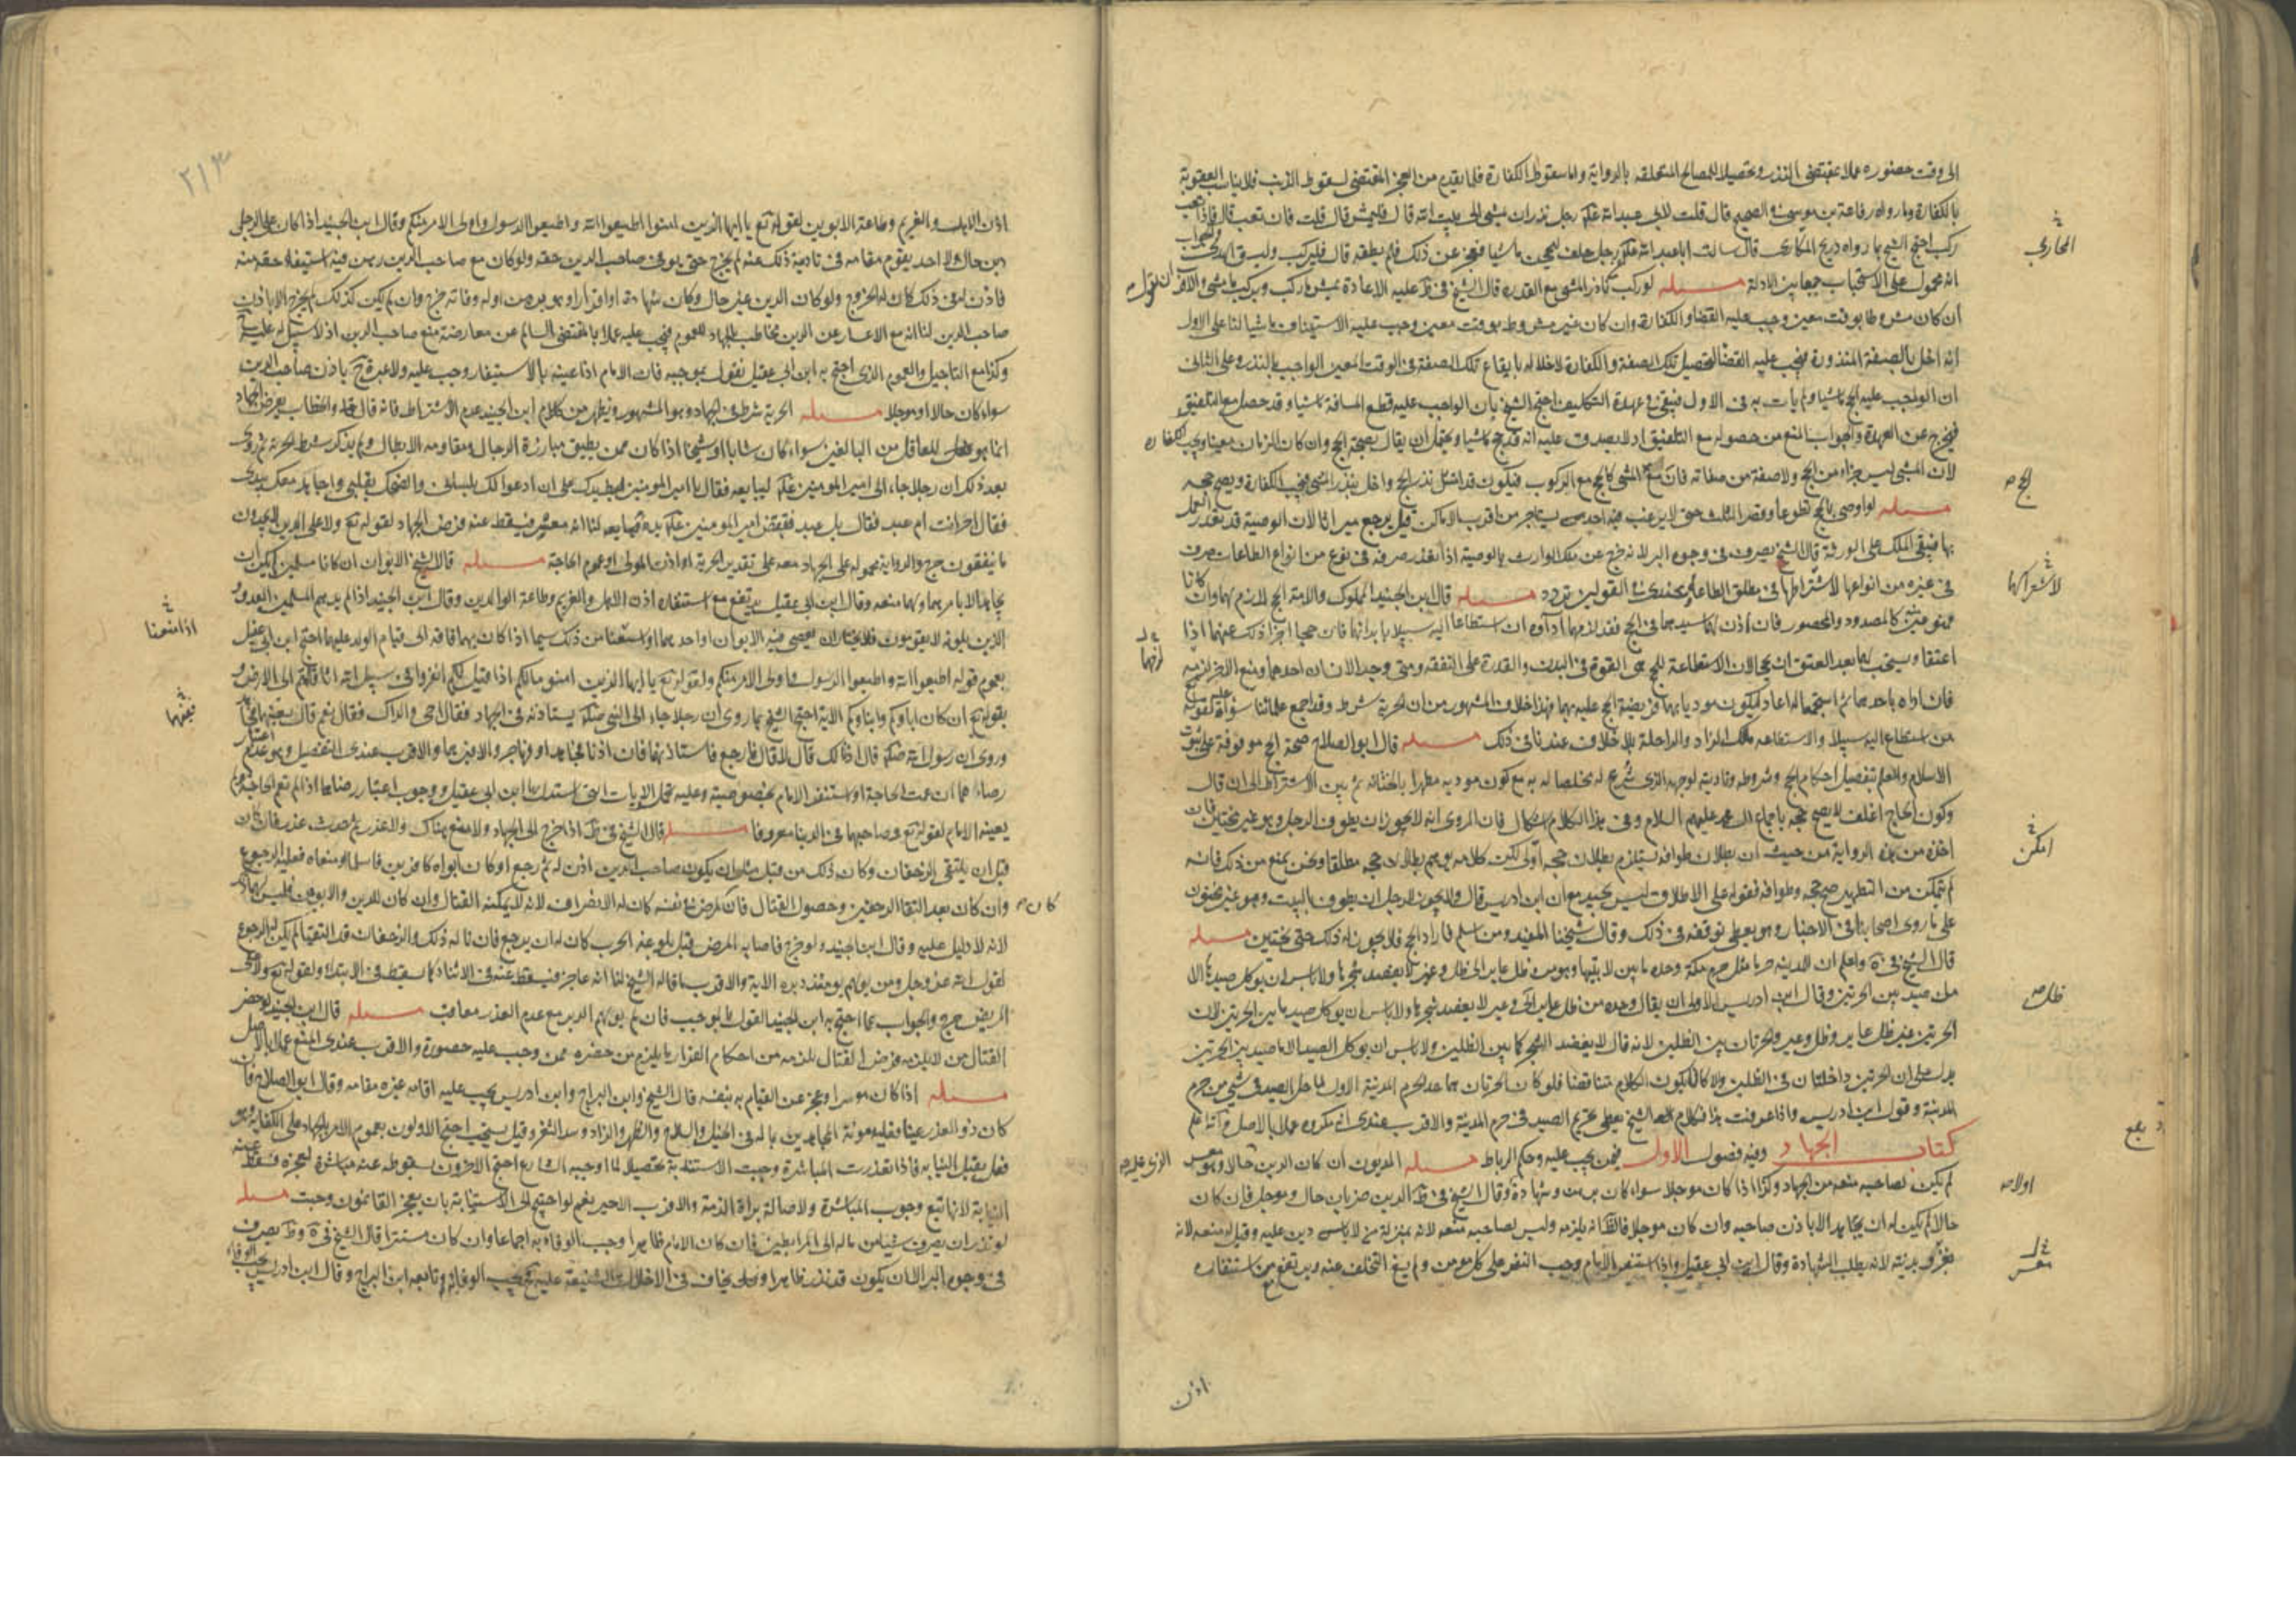 الى وقت حضوره عملا بمقتضى النذر وتحصيلا للمصالح المتعلقه بالرواية واما سقوط الكفارة فلما تقدم من العجز المقتضى لسقوط الذنب فلا يناسب العقوبة
بالكفارة وما رواه رفاعة بن موسى في الصحيح قال قلت لابي عبد الله علم رجل نذر ان يمشي الى بيت الله قال فليمش قال قلت فان تعب قال فاذا تعب
ركب احتج الشيخ بما رواه ذريح المحاربى قال سالت ابا عبد الله علم عن رجل حلف ليحجن ماشيا فعجز عن ذلك فلم يطقه قال فليركب وليسق الهدى والجواب
انه محمول على الاستحباب جمعا بين الادلة مسئله لو ركب ناذر المشي مع القدرة قال الشيخ في ط عليه الاعادة يمشي ما ركب ويركب ما مشى والاقرب ان نقول
ان كان مشروطا بوقت معين وجب عليه القضا والكفارة وان كان غير مشروط بوقت معين وجب عليه الاستيناف ماشيا لنا على الاول
انه اخل بالصفة المنذورة فيجب عليه القضا لتحصيل تلك الصفة والكفارة لاخلاله بايقاع تلك الصفة فى الوقت المعين الواجب بالنذر وعلى الثانى
ان الواجب عليه الحج ماشيا ولم يات به فى الاول فيبقى فى عهدة التكليف احتج الشيخ بان الواجب عليه قطع المسافة ماشيا وقد حصل مع التلفيق
فيخرج عن العهدة والجواب المنع من حصوله مع التلفيق اذ لا يصدق عليه انه قد حج ماشيا ويحتمل ان يقال بصحة الحج وان كان الزمان معينا ويجب الكفارة
لان المشي ليس جزءا من الحج ولا صفة من صفاته فان المشي كالحج مع الركوب فيكون قد امتثل نذر الحج واخل بنذر المشي فيجب الكفارة ويصح حجه
مسئله لو اوصى بالحج تطوعا وقصر الثلث حتى لا يرغب فيه احد من يستاجر من اقرب الاماكن قيل يرجع ميراثا لان الوصية قد تعذر العمل
بها فيبقى الملك على الورثة قال الشيخ يصرف فى وجوه البر لانه خرج عن ملك الوارث بالوصية اذا تعذر صرفه فى نوع من انواع الطاعات صرف
فى غيره من انواعها لاشتراكها فى مطلق الطاعة وعندى فى القولين تردد مسئله قال ابن الجنيد المملوك والامة الحج لا يلزمهما وان كانا
ممنوعين كالمصدود والمحصور فان اذن لهما سيدهما فى الحج فقد لزمهما اداوه ان استطاعا اليه سبيلا بابدانهما فان حجا اجزا ذلك عنهما اذا
اعتقا ويستحب لهما بعد العتق ان يحجا لان الاستطاعة للحج هى القوة فى البدن والقدرة على النفقه ومتى وجد الانسان احدهما ومنع الاخر لزمه
فان اداه باحدهما ثم استجمعا له اعاد ليكون موديا بهما فريضة الحج عليه بهما وهذا خلاف المشهور من ان الحرية شرط وقد اجمع علمائنا
من استطاع اليه سبيلا والاستطاعة ملك الزاد والراحلة بلا خلاف عندنا فى ذلك مسئله قال ابو الصلاح صحة الحج موقوفة على ثبوت
الاسلام والعلم بتفصيل احكام الحج وشروطه وتاديته لوجهه الذى شرع له مخلصا له به مع كون موديه مطهرا بالختانه ثم بين الاشتراط الى ان قال
وكون الحاج اغلف لا يصح حجه باجماع ال محمد عليهم السلام وفى هذا الكلام اشكال فان المروى انه لا يجوز ان يطوف الرجل وهو غير مختتن فان
اخذه من هذه الرواية من حيث ان بطلان طوافه يستلزم بطلان حجه اولى لكن كلامه يوهم بطلان حجه مطلقا ونحن نمنع من ذلك فانه
لم يتمكن من التطهير صح حجه وطوافه فقوله على الاطلاق ليس بجيد مع ان ابن ادريس قال ولا يجوز للرجل ان يطوف بالبيت وهو غير مختون
على ما روى اصحابنا فى الاخبار وهو يعطى توقفه فى ذلك وقال شيخنا المفيد ومن اسلم فاراد الحج فلا يجوز له ذلك حتى يختتن مسئله
قال الشيخ فى ية واعلم ان للمدينه حرما مثل حرم مكة وحده ما بين لابتيها وهو من ظل عاير الى ظل وعير لا يعضد شجرها ولا باس ان يوكل صيدها الا
ما صيد بين الحرتين وقال ابن ادريس الاولى ان يقال وحده من ظل عاير الى وعير لا يعضد شجرها ولا باس ان يوكل صيدها بين الحرتين لان
الحرتين غير ظل عاير وظل وعير والحرتان بين الظلين لانه قال لا يعضد الشجر كما بين الظلين ولا باس ان يوكل الصيد الا ما صيد بين الحرتين
يدل على ان الحرتين داخلتان فى الظلين والا كان يكون الكلام متناقضا فلو كان الحرتان هما حد الحرم المدينة الاول لما حل الصيد فى شي من حرم
المدينة وقول ابن ادريس واذا عرفت هذا فكلام الشيخ يعطى تحريم الصيد فى حرم المدينة والاقرب عندى انه مكروه عملا بالاصل
كتاب الجهاد وفيه فصول الاول فيمن يجب عليه وحكم الرباط مسئله المديون ان كان الدين حالا وهو معسر
لم يكن لصاحبه منعه من الجهاد وكذا اذا كان موجلا سواء كان برهن وشهادة وقال الشيخ فى ط الدين ضربان حال وموجل فان كان
حالا لم يكن له ان يجاهد الا باذن صاحبه وان كان موجلا فالظ انه يلزمه وليس لصاحبه منعه لانه بمنزلة من لا دين عليه وقيل له منعه لانه
يغرر بدينه لانه يطلب الشهادة وقال ابن ابي عقيل واذا استنفر الامام وجب النفر على كل مومن ولم يسغ التخلف عنه ويرتفع مع استنفاره
المحاربي
الحج صح
لاشتراكهما
لزمهما
امكن
ظل صح
اولا صح
معسر
الذى عليه صح
اذن
٢١٣
اذن الابوين والغريم وطاعة الابوين لقوله تع يا ايها الذين امنوا اطيعوا الله واطيعوا الرسول واولى الامر منكم وقال ابن الجنيد اذا كان على الرجل
دين حال ولا احد يقوم مقامه فى تادية ذلك عنه لم يخرج حتى يوفى صاحب الدين حقه ولو كان مع صاحب الدين رهن فيه استيفاء حقه منه
فاذن له فى ذلك كان له الخروج ولو كان الدين غير حال وكان بشهادة او اقرار او هو برهن اوله وفاته خرج وان لم يكن كذلك لم يخرج الا باذن
صاحب الدين لنا انه مع الاعسار عن الدين مخاطب بالجهاد للعموم فيجب عليه عملا بالمقتضى السالم عن معارضة منع صاحب الدين اذ لا سبيل له عليه
وكذا مع التاجيل والعموم الذى احتج به ابن ابى عقيل نقول بموجبه فان الامام اذا عينه بالاستنفار وجب عليه ولا عبرة ح باذن صاحب الدين
سواء كان حالا او موجلا مسئله الحرية شرط فى الجهاد وهو المشهور ويظهر من كلام ابن الجنيد عدم الاشتراط فانه قال والخطاب بفرض الجهاد
انما هو للعاقل من البالغين سواء كان شابا او شيخا اذا كان ممن يطيق مبارزة الرجال ومقاومه الابطال ولم يذكر شرط الحرية ثم روى
بعد ذلك ان رجلا جاء الى امير المومنين علم ليبايعه فقال يا امير المومنين ابسط يدك على ان ادعو لك بلسانى وانصحك بقلبي واجاهد معك بيدى
فقال احر انت ام عبد فقال بل عبد فقبض امير المومنين علم يده فبايعه لنا انه معسر فيسقط عنه فرض الجهاد لقوله تع ولا على الذين لا يجدون
ما ينفقون حرج والرواية محموله على الجهاد معه على تقدير الحرية او اذن المولى او عموم الحاجة مسئله قال الشيخ الابوان ان كانا مسلمين لم يكن له ان
يجاهد الا بامرهما ولهما منعه وقال ابن ابى عقيل يرتفع مع استنفاره اذن الابوين والغريم وطاعة الوالدين وقال ابن الجنيد اذا لم يدهم المسلمين العدو
الذين يلونه لا يقومون فلا يختار ان يعصى فيه الابوان او احدهما او استغنا من ذلك سيما اذا كان بهما فاقه الى قيام الولد عليهما احتج ابن ابى عقيل
بعموم قوله اطيعوا الله واطيعوا الرسول واولى الامر منكم ولقوله تع يا ايها الذين امنوا مالكم اذا قيل لكم انفروا فى سبيل الله اثاقلتم الى الارض و
بقوله تع ان كان اباوكم وابناوكم الاية احتج الشيخ بما روى ان رجلا جاء الى النبى صلم يستاذنه فى الجهاد فقال احى والداك فقال نعم قال ففيهما فجاهد
وروى ان رسول الله صلم قال اذنا لك قال لا قال فارجع فاستاذنهما فان اذنا فجاهد او فهاجر والا فبرهما والاقرب عندى التفصيل وهو عدم اعتبار
رضاهما ان عمت الحاجة او استنفر الامام بخصوصيته وعليه تحمل الايات التى استدل بها ابن ابى عقيل ووجوب اعتبار رضاهما اذا لم تعم الحاجة ولم
يعينه الامام لقوله تع وصاحبهما فى الدنيا معروفا مسئله قال الشيخ فى ط اذا خرج الى الجهاد ولا منع هناك ولا عذر ثم حدث عذر فان كان
قبل ان يلتقى الزحفان وكان ذلك من قبل مثل ان يكون صاحب الدين اذن له ثم رجع او كان ابواه كافرين فاسلما ومنعاه فعليه الرجوع
وان كان بعد التقا الزحفين وحصول القتال فان كان لمرض فى نفسه كان له الانصراف لانه لا يمكنه القتال وان كان للدين والابوين فليس لهما ذلك
لانه لا دليل عليه وقال ابن الجنيد ولو خرج فاصابه المرض قبل بلوغه الحرب كان له ان يرجع فان ناله ذلك والزحفان قد التقيا لم يكن له الرجوع
لقول الله عز وجل ومن يولهم يومئذ دبره الاية والاقرب ما قاله الشيخ لنا انه عاجز فيسقط عنه فى الاثناء كما يسقط فى الابتداء ولقوله تع ولا على
المريض حرج والجواب عما احتج به ابن الجنيد القول بالموجب فان لم يولهم الدبر مع عدم العذر معاقب مسئله قال ابن الجنيد لو حضر
القتال من لا يلزمه فرض القتال لزمه من احكام الفرار ما يلزم من حضره ممن وجب عليه حضوره والاقرب عندى المنع عملا بالاصل
مسئله اذا كان موسرا وعجز عن القيام به بنفسه قال الشيخ وابن البراج وابن ادريس يجب عليه اقامة غيره مقامه وقال ابو الصلاح فان
كان ذو العذر غنيا فعليه معونة المجاهدين بماله فى الخيل والسلاح والظهر والزاد وسد الثغر وقيل يستحب احتج الاولون بعموم الامر بالجهاد على الكفاية وهو
فعل يقبل النيابه فاذا تعذرت المباشرة وجبت الاستنابة تحصيلا لما اوجبه الشارع احتج الاخرون بسقوطه عنه مباشرة لعجزه فسقط عنه
النيابة لانها تتبع وجوب المباشرة ولاصالة براة الذمة والاقرب الاخير نعم لو احتيج الى الاستنابة بان يعجز القائمون وجبت مسئله
لو نذر ان يصرف شيئا من ماله الى المرابطين فان كان الامام ظاهرا وجب الوفاء به اجماعا وان كان مستترا قال الشيخ فى ية وط يصرف
فى وجوه البر الا ان يكون قد نذر ظاهرا ويخاف فى الاخلال به الشنيعة عليه فح يجب الوفا به وتابعه ابن البراج وقال ابن ادريس يجب الوفاء
كان صح